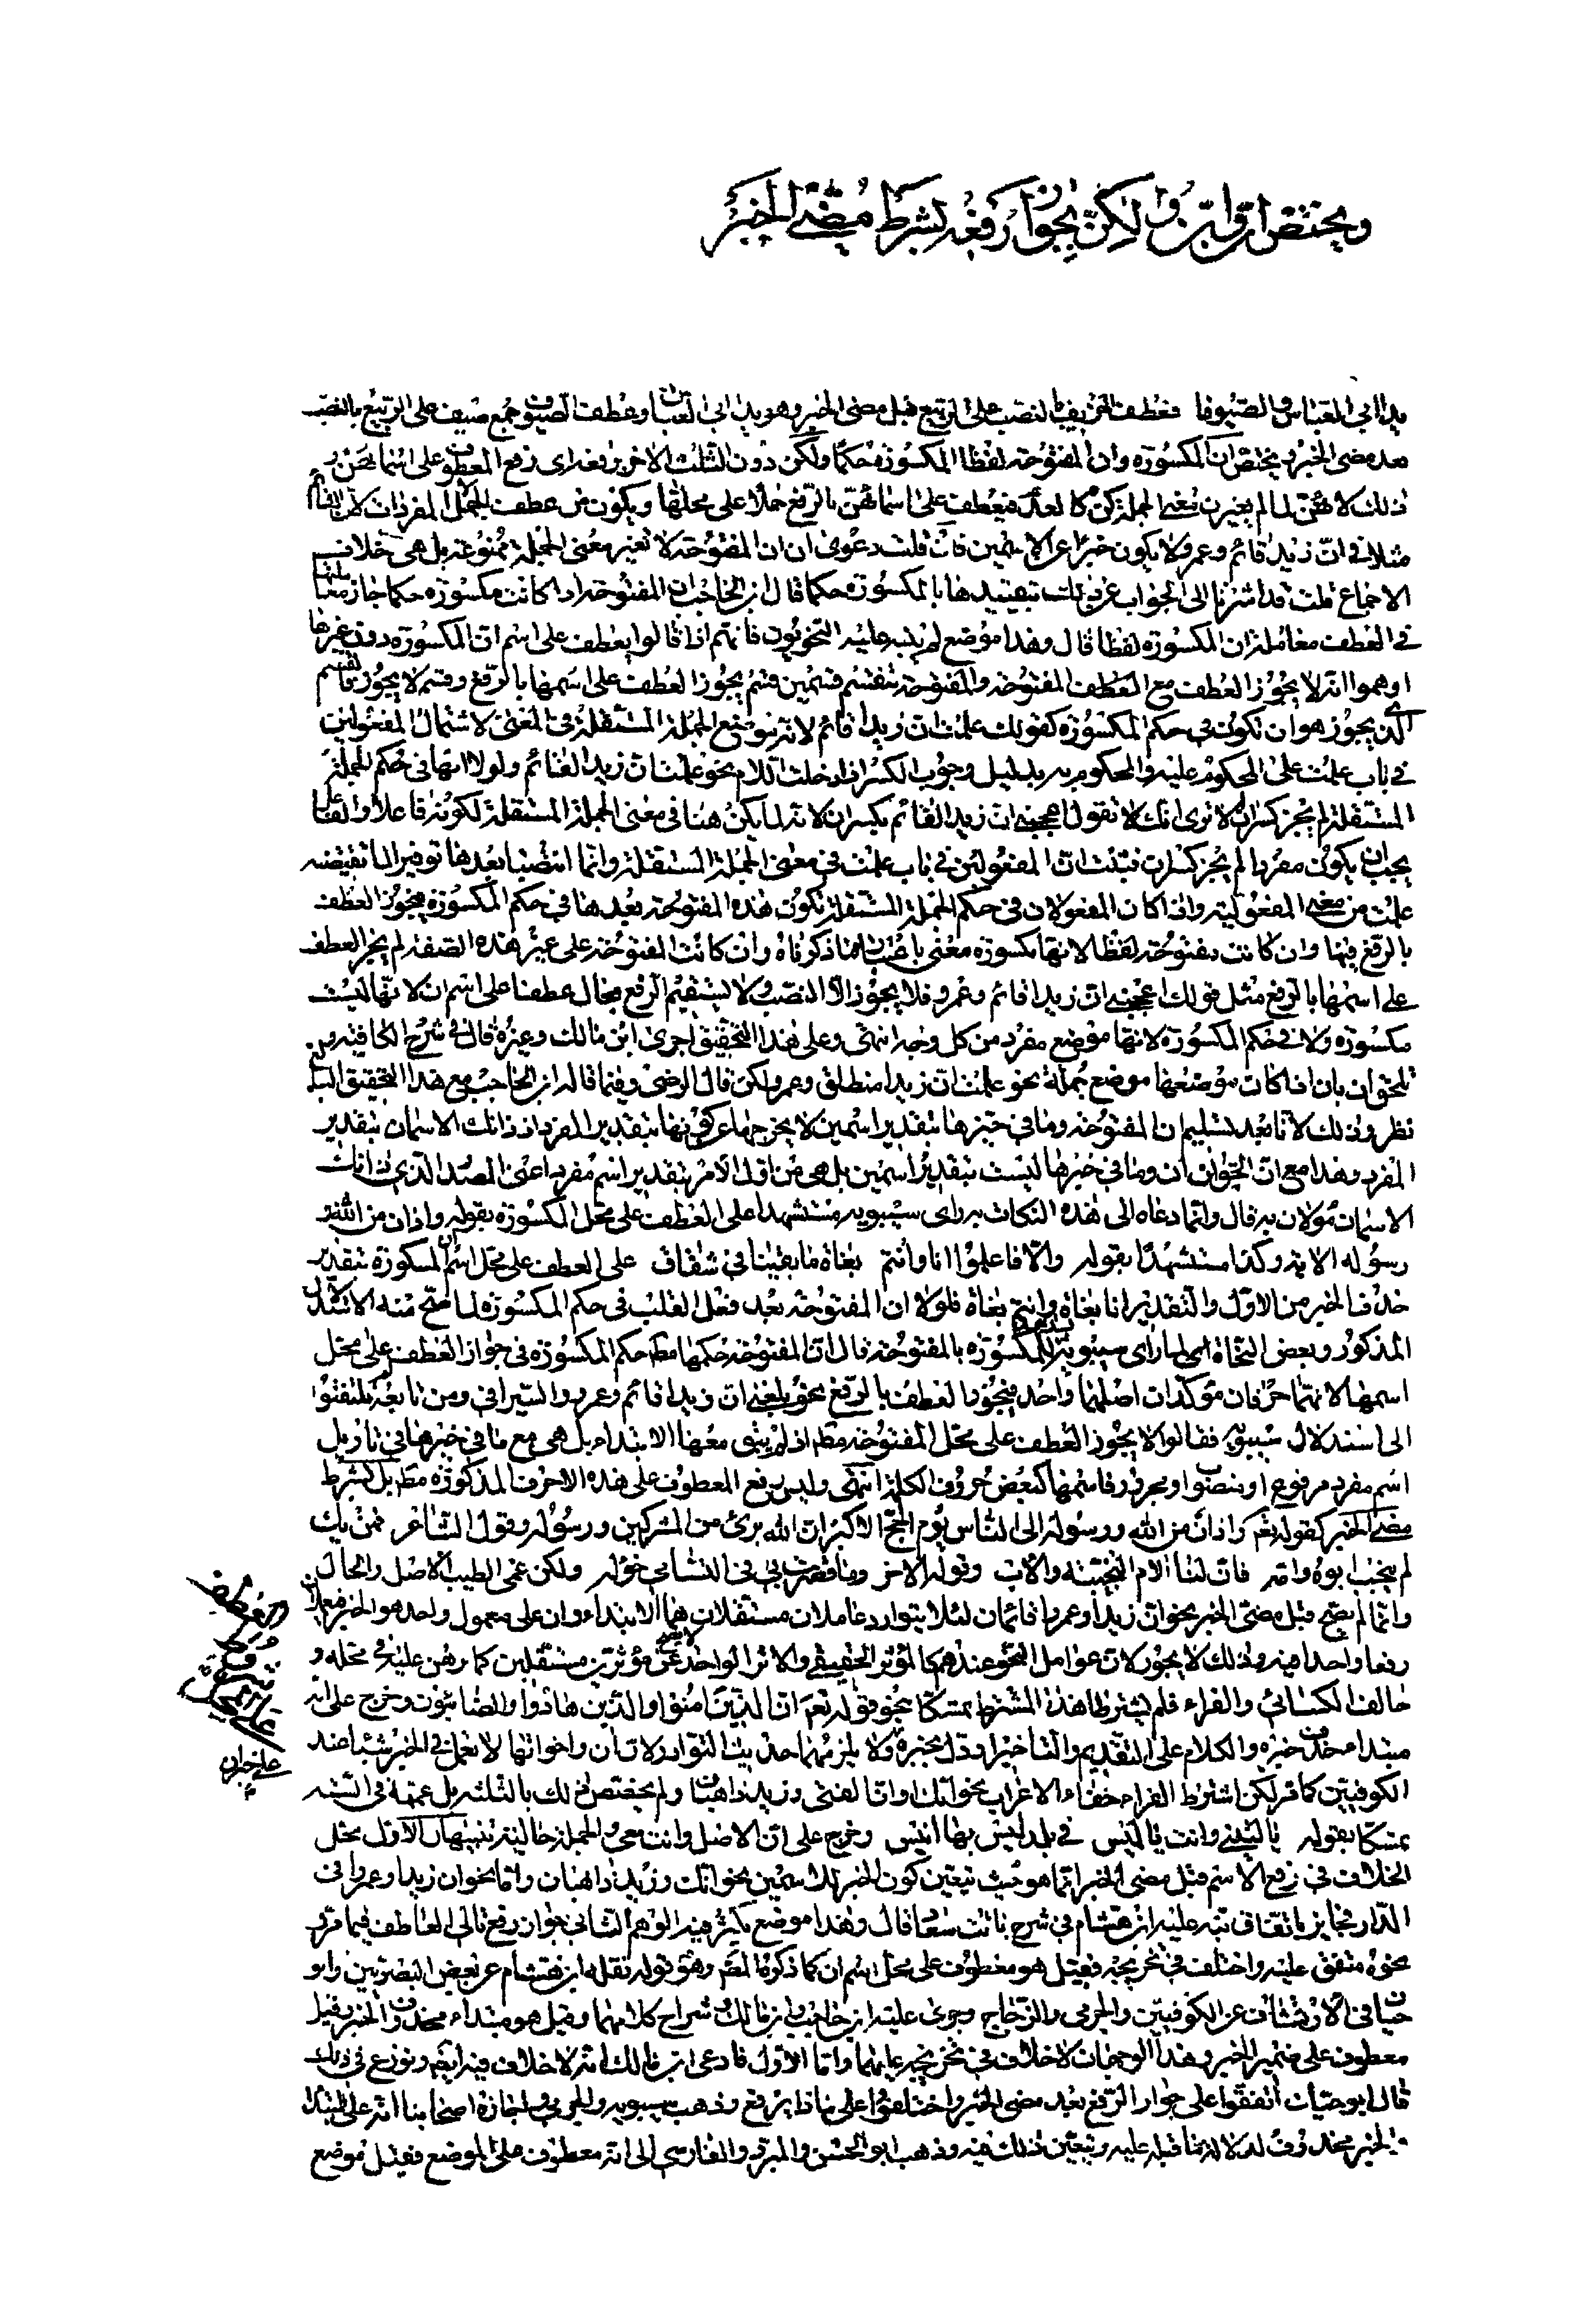 ويختص ان وان ولكن بجواز رفعه بشرط مضي الخبر
يدا ابي العباس والصيوفا فعطف الخريف بالنصب على الربيع قبل مضى الخبر وهو يدا ابي العباس وعطف الصيوف جمع صيف على الربيع بالنصب
بعد مضى الخبر ويختص ان المكسورة وان المفتوحة لفظا المكسورة حكما ولكن دون الثلث الاخر برفعه اى رفع المعطوف على اسمائهن و
ذلك لانهن لما لم يغيرن معنى الجملة كن كالعدم فيعطف على اسمائهن بالرفع حملا على محلها ويكون من عطف الجمل لا المفردات لان القائم
مثلا في ان زيدا قائم وعمرو لا يكون خبرا عن الاسمين فان قلت دعوى ان ان المفتوحة لا تغير معنى الجملة ممنوعة بل هي خلاف
الاجماع قلت قد اشرنا الى الجواب عن ذلك بتقييدها بالمكسورة حكما قال ابن الحاجب ان المفتوحة اذا كانت مكسورة حكما جاز معاملتها
في العطف معاملة ان المكسورة لفظا قال وهذا موضع لم ينبه عليه النحويون فانهم اذا قالوا يعطف على اسم ان المكسورة دون غيرها
اوهموا انه لا يجوز العطف مع العطف المفتوحة والمفتوحة تنقسم قسمين قسم يجوز العطف على اسمها بالرفع وقسم لا يجوز فالقسم
الذي يجوز هو ان تكون في حكم المكسورة كقولك علمت ان زيدا قائم لانه موضع الجملة المستقلة في المعنى لاشتمال المفعولين
في باب علمت على المحكوم عليه والمحكوم به بدليل وجوب الكسر اذا دخلت اللام نحو علمت ان زيدا لقائم ولولا انها في حكم الجملة
المستقلة لم يجز كسر ان الا ترى انك لا تقول اعجبني ان زيدا لقائم بكسر ان لانه لما يكن هنا في معنى الجملة المستقلة لكونه فاعلا والفاعل
يجب ان يكون مفردا لم يجز كسر ان فثبت ان المفعولين في باب علمت في معنى الجملة المستقلة وانما انتصبا بعدها توفيرا لما تقتضيه
علمت من معنى المفعولية واذا كان المفعولان في حكم الجملة المستقلة تكون هذه المفتوحة بعدها في حكم المكسورة فيجوز العطف
بالرفع فيها وان كانت مفتوحة لفظا لانها مكسورة معنى باعتبار ما ذكرناه وان كانت المفتوحة على غير هذه الصفة لم يجز العطف
على اسمها بالرفع مثل قولك اعجبني ان زيدا قائم وعمرو فلا يجوز الا النصب ولا يستقيم الرفع بحال عطفا على اسم ان لانها ليست
مكسورة ولا في حكم المكسورة لانها موضع مفرد من كل وجه انتهى وعلى هذا التحقيق جرى ابن مالك وغيره قال في شرح الكافية و
تلحق ان بان اذا كان موضعها موضع جملة نحو علمت ان زيدا منطلق وعمرو لكن قال الرضى وفيما قاله ابن الحاجب مع هذا التحقيق
نظر وذلك لانا بعد تسليم ان المفتوحة وما في حيزها بتقدير اسمين لا يخرجها عن كونها بتقدير المفرد اذ ذانك الاسمان بتقدير
المفرد وهذا مع ان الحق ان ان وما في حيزها ليست بتقدير اسمين بل هي من اول الامر بتقدير اسم مفرد اعنى المصدر الذي ذانك
الاسمان مؤولان به قال وانما دعاه الى هذه النكات به راى سيبويه مستشهدا على العطف على محل المكسورة بقوله واذان من الله و
رسوله الاية وكذا مستشهدا بقوله والا فاعلموا انا وانتم بغاة ما بقينا في شقاق على العطف على محل اسم ان المكسورة بتقدير
حذف الخبر من الاول والتقدير انا بغاة وانتم بغاة فلولا ان المفتوحة بعد فعل القلب في حكم المكسورة لما صح منه الاستدلال
المذكور وبعض النحاة لما راى سيبويه للمكسورة بالمفتوحة قال ان المفتوحة حكمها مطـ حكم المكسورة في جواز العطف على محل
اسمها لانهما حرفان مؤكدان اصلهما واحد فيجوز العطف بالرفع نحو بلغني ان زيدا قائم وعمرو والسيرافي ومن تابعه لم يلتفتوا
الى استدلال سيبويه فقالوا لا يجوز العطف على محل المفتوحة مطـ اذ لم يبق معها الابتداء بل هي مع ما في خبرها في تاويل
اسم مفرد مرفوع او منصوب او مجرور فاسمها كبعض حروف الكلمة انتهى وليس رفع المعطوف على هذه الاحرف المذكورة مطـ بل بشرط
مضي الخبر كقوله تعم واذان من الله ورسوله الى الناس يوم الحج الاكبر ان الله برئ من المشركين ورسوله وقول الشاعر فمن يك
لم ينجب ابوه وامه فان لنا الام النجيبة والاب وقوله الاخر وما قصرت بي في التسامي خؤلة ولكن عمى الطيب الاصل والخال
وانما لم يصح قبل مضي الخبر نحو ان زيدا وعمرو قائمان لئلا يتوارد عاملان مستقلان هما الابتداء وان على معمول واحد هو الخبر فيعملان
رفعا واحدا فيه وذلك لا يجوز لان عوامل النحو عندهم كالمؤثر الحقيقي والاثر الواحد لا يصدر عن مؤثرين مستقلين كما برهن عليه في محله و
خالف الكسائي والفراء فلم يشترطا هذا الشرط تمسكا بنحو قوله تعم ان الذين امنوا والذين هادوا والصابئون وخرج على انه
مبتداء حذف خبره والكلام على التقديم والتاخير ودل بخبره ولا يلزمهما حديث التوارد لان ان واخواتها لا تعمل في الخبر شيئا عند
الكوفيين كما مر لكن اشترط الفراء خفاء الاعراب نحو انك وان الفتى وزيد ذاهبان ولم يختص ذلك بالثلثة بل عممه في الستة
تمسكا بقوله يا ليتني وانت يا لميس في بلد ليس بها انيس وخرج على ان الاصل وانت معي والجملة حالية تنبيهان الاول محل
الخلاف في رفع الاسم قبل مضى الخبر انما هو حيث تتعين كون الخبر للاسمين نحو انك وزيد ذاهبان واما نحو ان زيدا وعمرو في
الدار فجايز باتفاق نبه عليه ابن هشام في شرح بانت سعاد قال وهذا موضع يكثر فيه الوهم الثاني جواز رفع تالي العاطف فيما مر و
نحوه متفق عليه واختلف في تخريجه فقيل هو معطوف على محل اسم ان كما ذكره المصـ وهو قوله نقله ابن هشام عن بعض البصريين وابو
حيان في الارتشاف عن الكوفيين والجرمى والزجاج وجرى عليه ابن حاجب وابن مالك وشراح كلامهما وقيل هو مبتداء محذوف الخبر وقيل
معطوف على ضمير الخبر وهذا الوجهان لا خلاف في تخريجه عليهما واما الاول فادعى ابن مالك انه لا خلاف فيه ايضا ونوزع في ذلك
قال ابو حيان اتفقوا على جواز الرفع بعد مضى الخبر واختلفوا على ماذا يرفع وذهب سيبويه والجرمى واجازة اصحابنا انه على الابتداء
والخبر محذوف لدلالة ما قبله عليه ويتعين ذلك فيه وذهب ابو الحسن والمبرد والفارسي الى انه معطوف على الموضع فقيل موضع